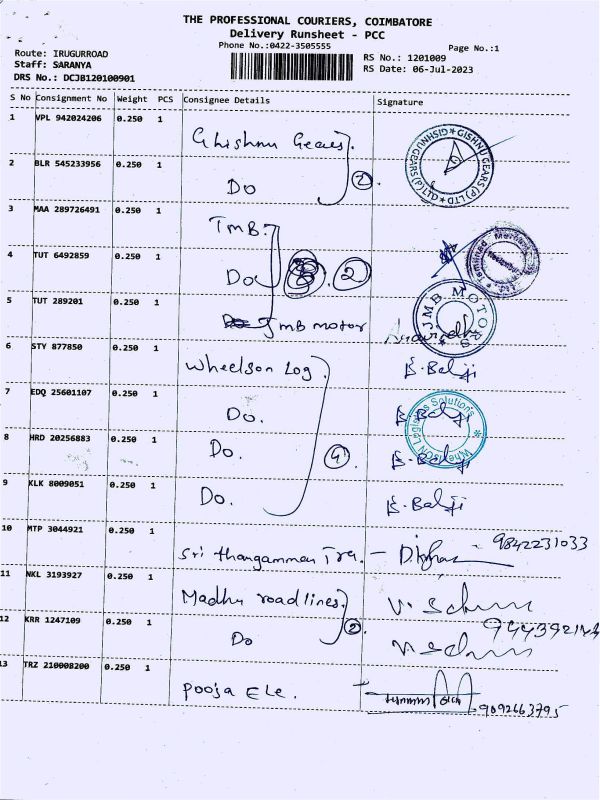 THE PROFESSIONAL COURIERS, COIMBATORE
Delivery Runsheet - PCC
Phone No.:0422-3505555
Page No.:1
Route: IRUGURROAD
Staff: SARANYA
DRS No.: DCJB120100901
RS No.: 1201009
RS Date: 06-Jul-2023
S No Consignment No Weight PCS Consignee Details Signature
1 VPL 942024206 0.250 1 Ghishnu Gears.
GISHNU GEARS (P) LTD
2 BLR 545233956 0.250 1 Do 2.
3 MAA 289726491 0.250 1 TMB.
4 TUT 6492859 0.250 1 Do 2
5 TUT 289201 0.250 1 JMB motor
JMB MOTORS
6 STY 877850 0.250 1 Wheelson Log. B. Balji
7 EDQ 25601107 0.250 1 Do. B. Balji
WheelsON Logistics Solutions
8 HRD 20256883 0.250 1 Do. 4 B. Balji
9 KLK 8009051 0.250 1 Do. B. Balji
10 MTP 3044921 0.250 1 Sri thangamman Tra. - 9842231033
11 NKL 3193927 0.250 1 Madhu roadlines.
12 KRR 1247109 0.250 1 Do 2.
13 TRZ 210008200 0.250 1 Pooja Ele. 9092663795